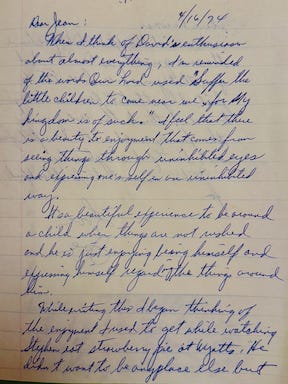 Dear Jean: 4/16/74
When I think of David's enthusiasm
about almost everything, I am reminded
of the words Our Lord used "Suffer the
little children to come near me, for My
kingdom is of such." I feel that there
is a beauty to enjoyment that comes from
seeing things through uninhibited eyes
and expressing one's self in an uninhibited
way.
It's a beautiful experience to be around
a child when things are not rushed
and he is just enjoying being himself and
expressing himself regarding the things around
him.
While writing this I began thinking of
the enjoyment I used to get while watching
Stephen eat strawberry pie at Wyatts. He
didn't want to be anyplace else but